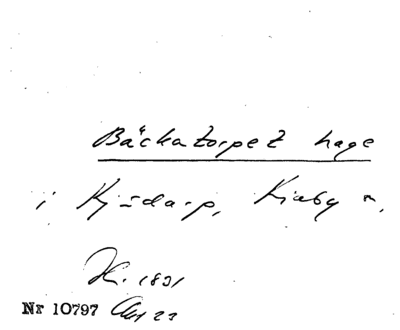 Bäckatorpet hage
i Kjúdarp, Kiaby n,
H. 1831
Nr 10797 Akt 22